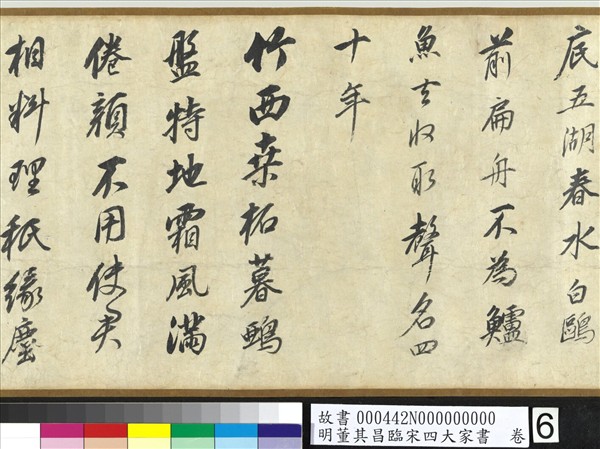 底五湖春水白鷗
前扁舟不為鱸
魚去收取聲名四
十年
竹西桑柘暮鴉
盤特地霜風滿
倦顏不用使君
相料理秖緣塵
故書 000442N000000000
明董其昌臨宋四大家書 卷
6